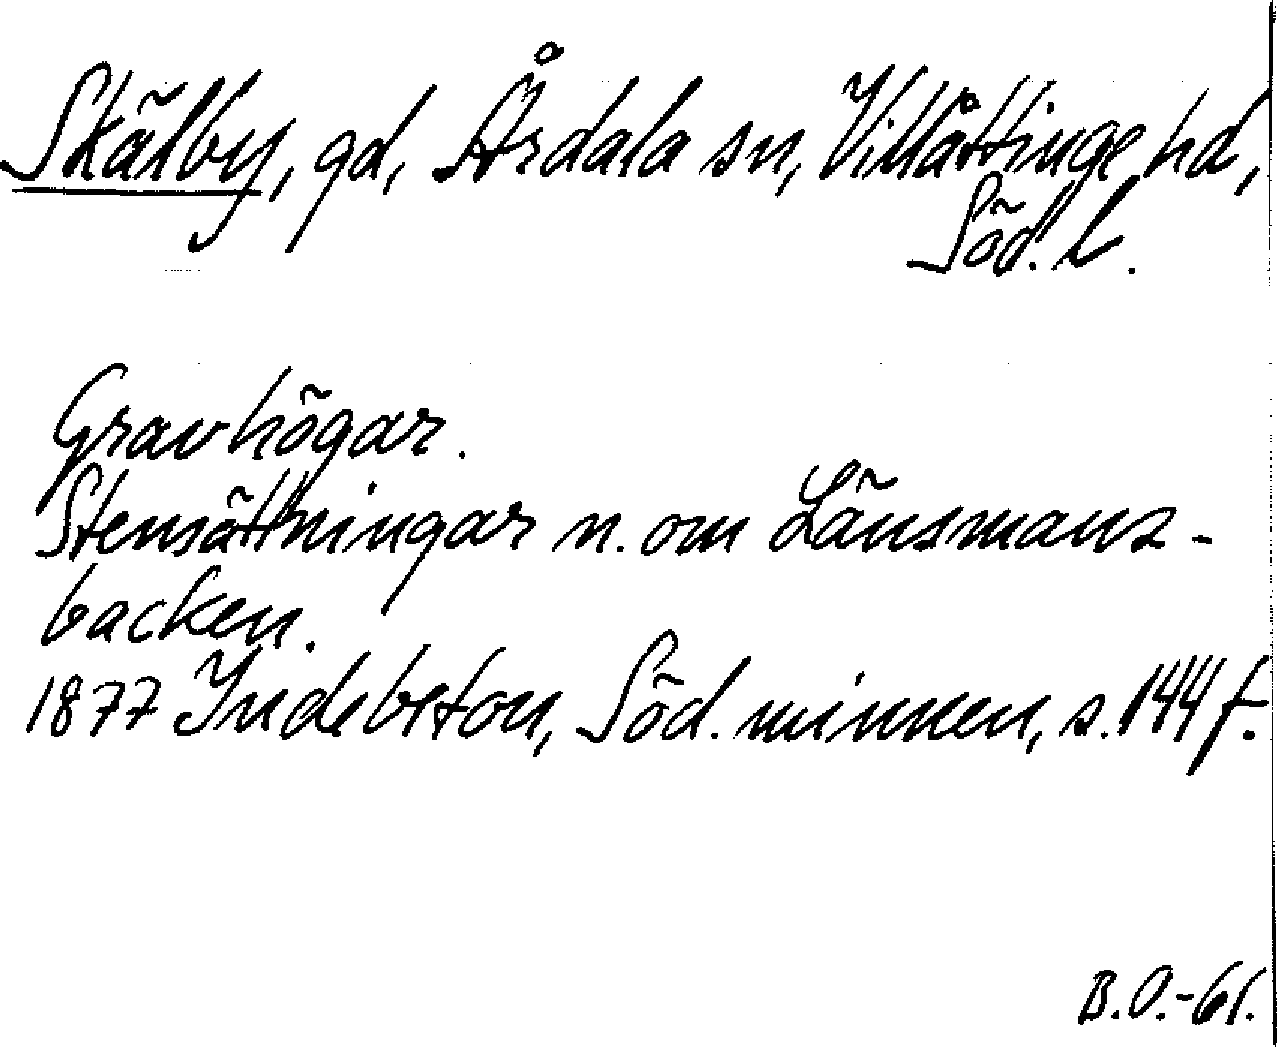 Skälby, gd, Årdala sn, Villåttinge hd,
Söd. l.
Gravhögar.
Stensättningar n. om Länsmans-
backen.
1877 Indebetou, Söd. minnen, s. 144 f.
B.O.-61.